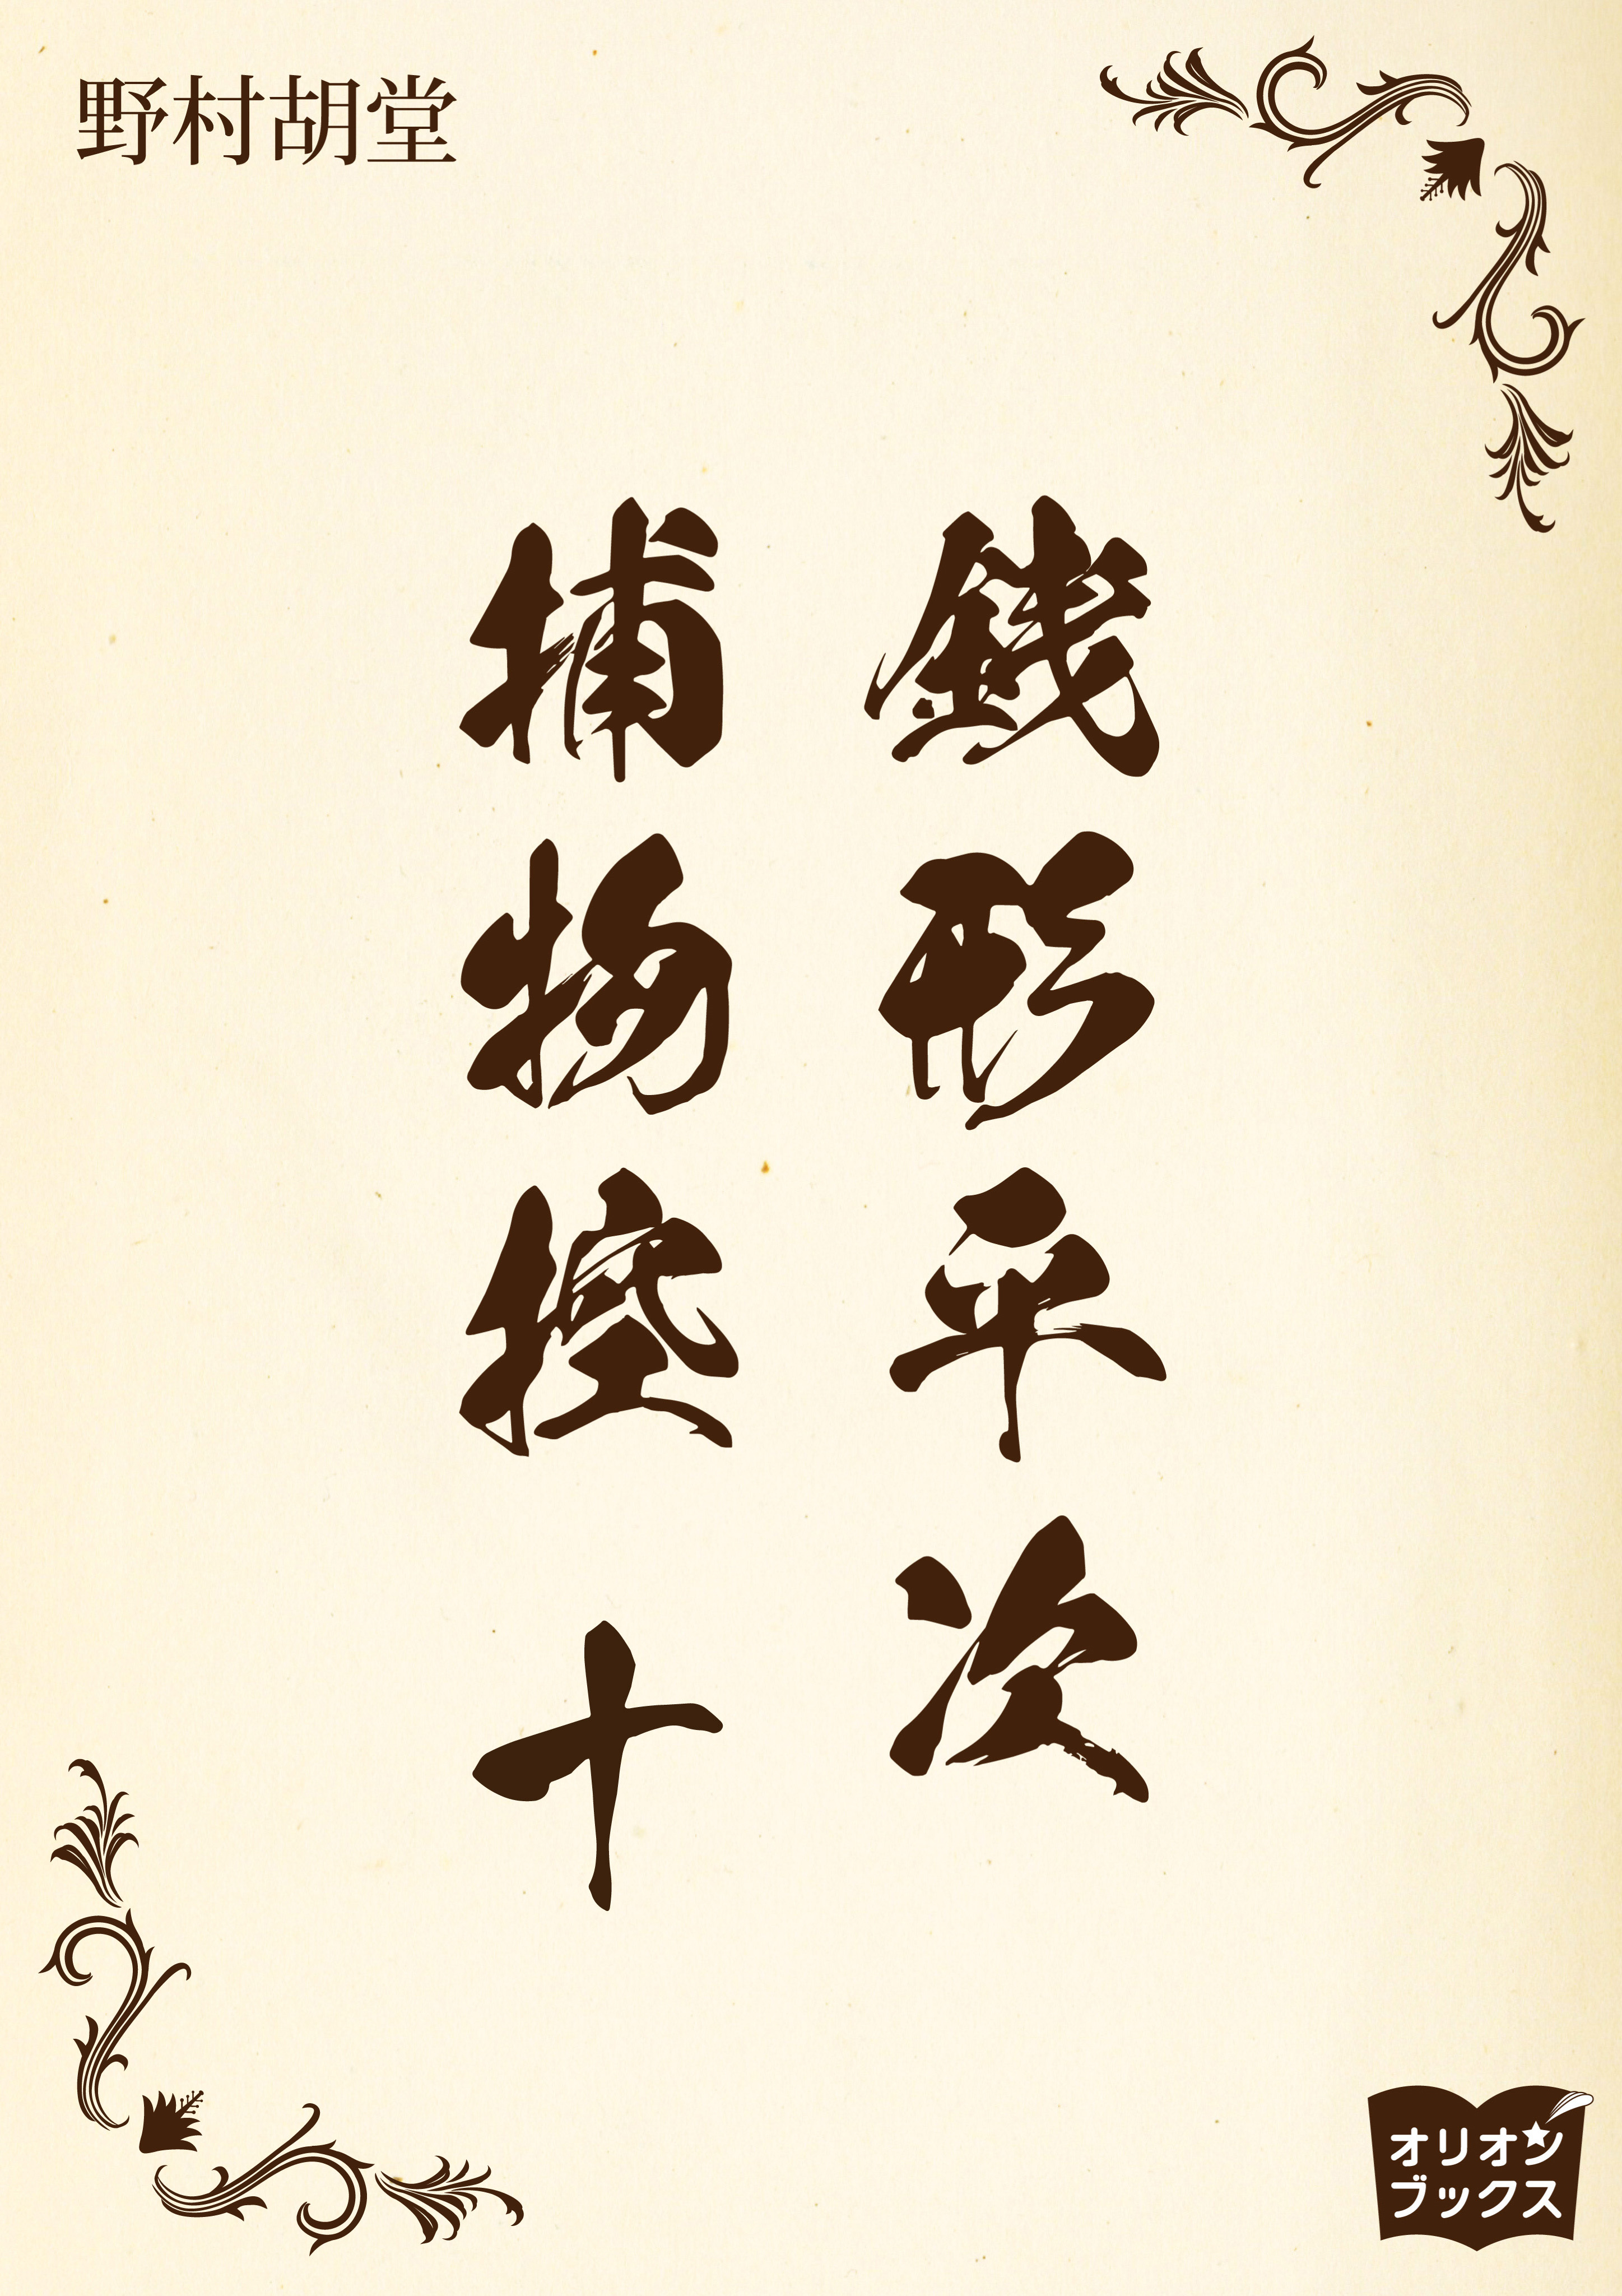 野村胡堂
銭形平次
捕物控 十
オリオン
ブックス